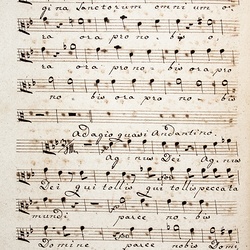 gina Sanctorum omnium o,
ra ora pro nobis o,
ra ora pro nobis ora pro
nobis ora pro nobis
Adagio quasi Andantino.
Agnus Dei Agnus
Dei qui tollis qui tollis peccata
mundi parce nobis
Domine parce nobis Domi